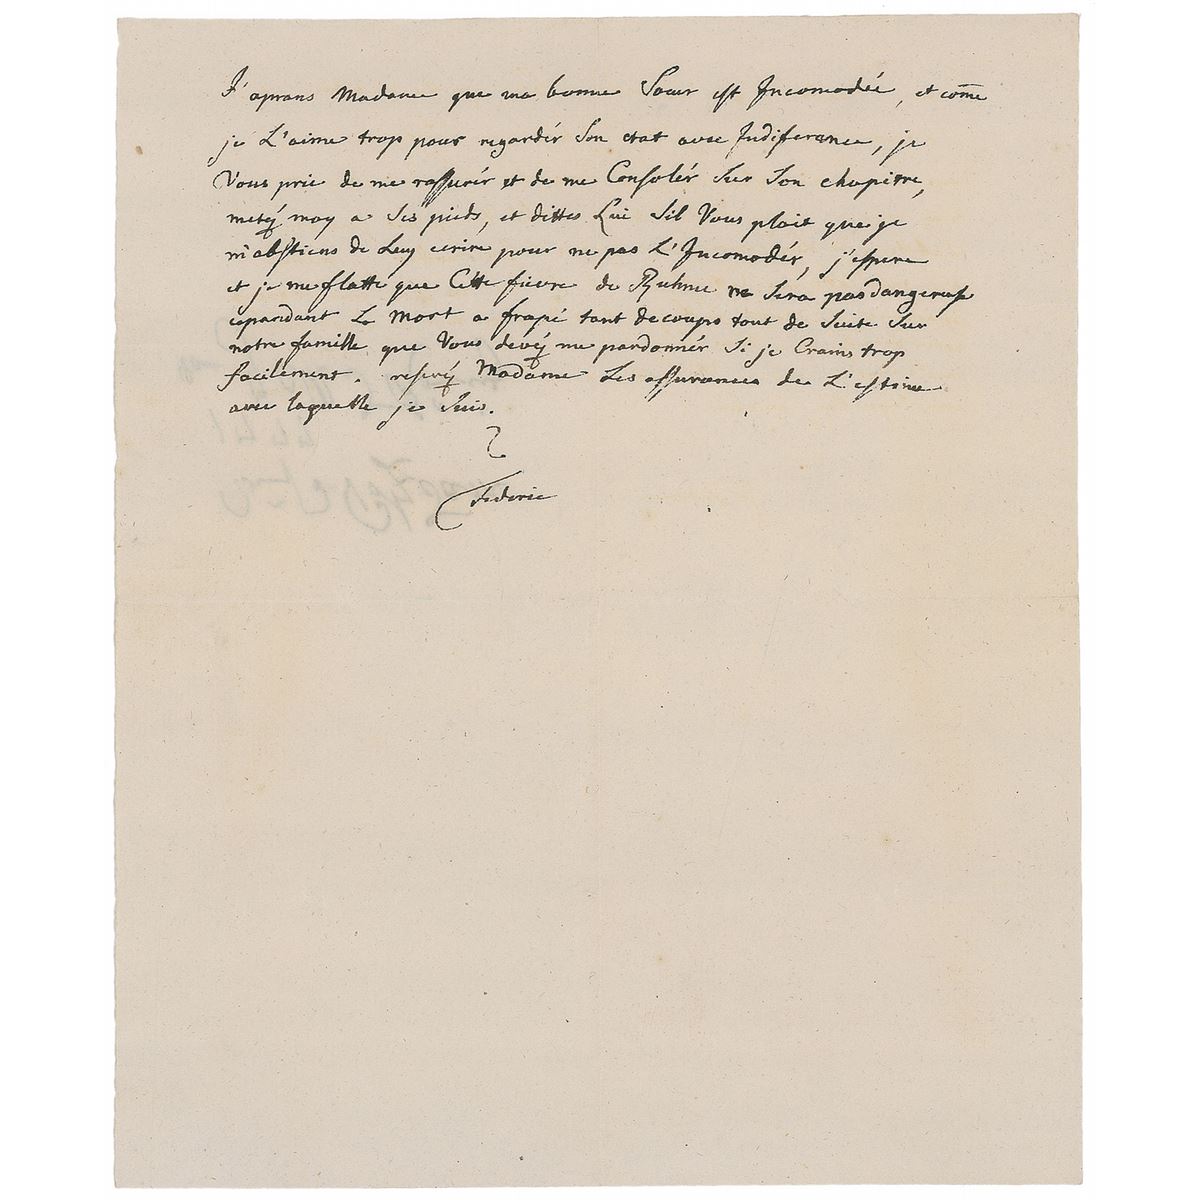 J'aprans Madame que ma bonne Soeur est Incomodée, et com̄e
je L'aime trop pour regardér Son etat avec Indiferance, je
Vous prie de me rassurér et de me Consolér Sur Son chapitre,
metéz moy a Ses pieds, et dittes Lui Sil Vous plait que je
m'abstiens de Luy ecrire pour ne pas L'Incomodér, j'espere
et je me flatte que Cette fievre de Ruhme ne Sera pas dangereuse
cepandant La Mort a frapé tant de coups tout de Suite Sur
notre famille que Vous devéz me pardonnér Si je Crains trop
facilement. Madame Les assurances de L'estime
avec laquelle je Suis.
Federic